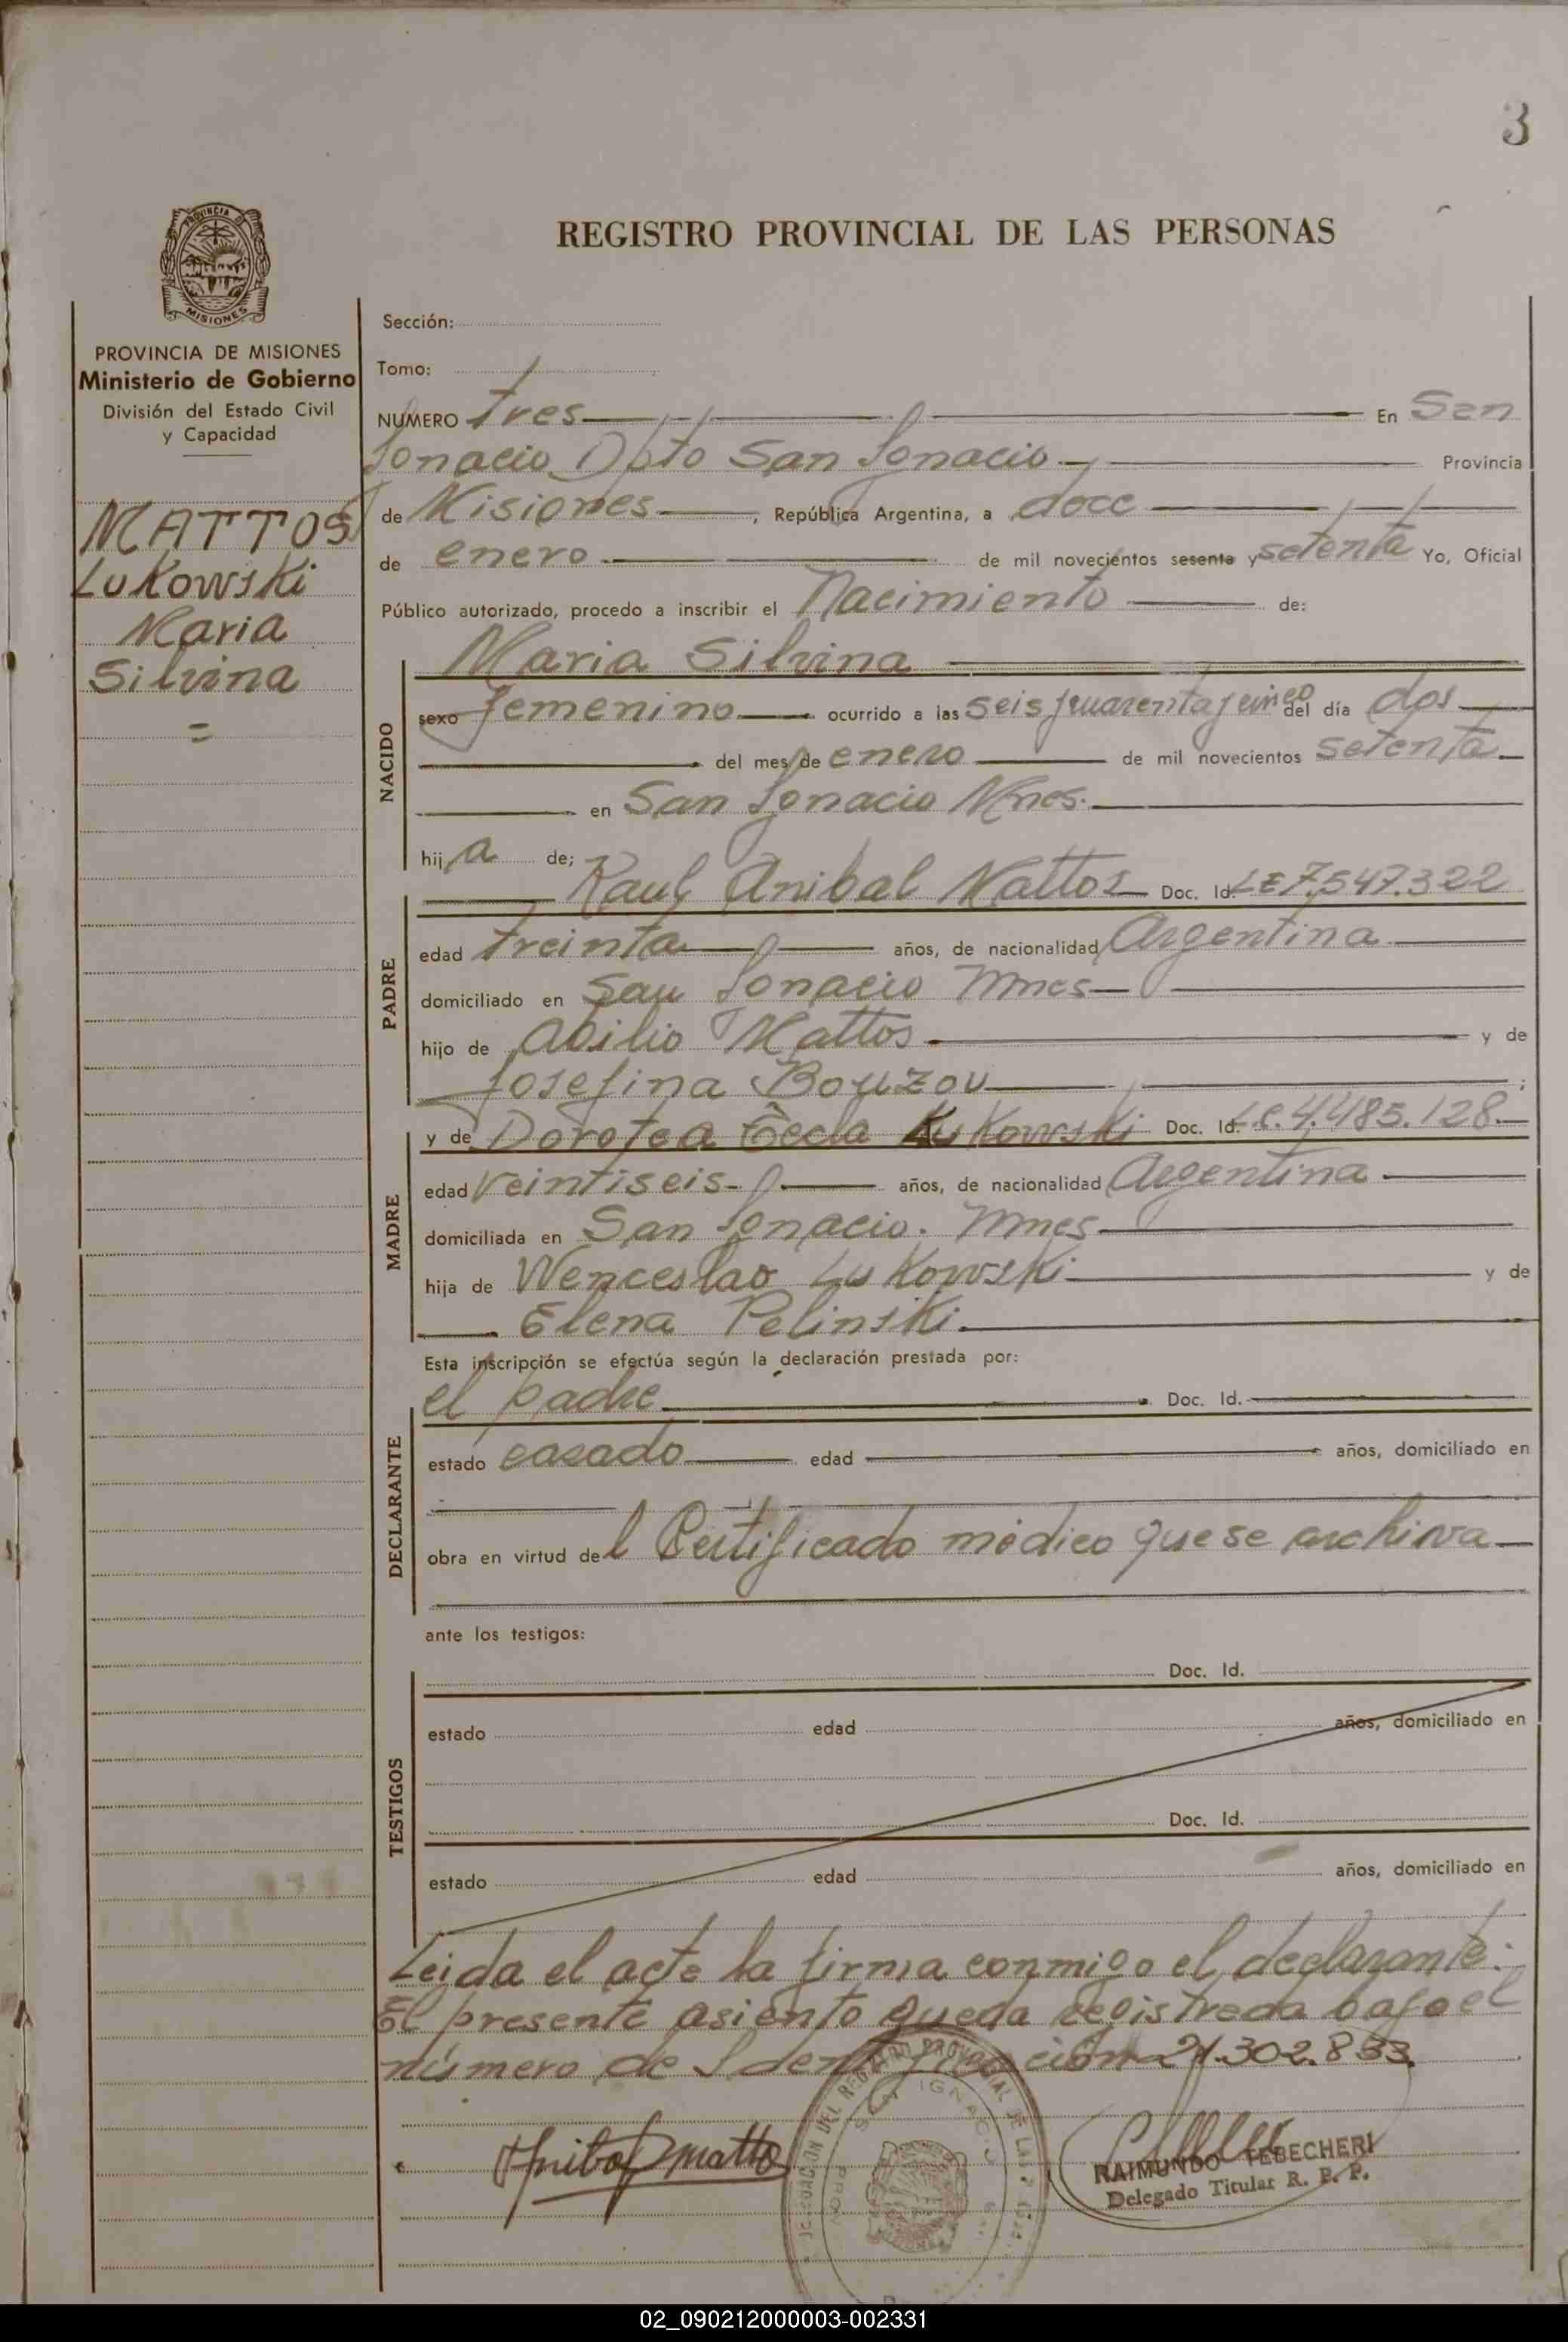 3
PROVINCIA DE
MISIONES
REGISTRO PROVINCIAL DE LAS PERSONAS
PROVINCIA DE MISIONES
Ministerio de Gobierno
División del Estado Civil
y Capacidad
MATTOS
Lukowski
Maria
Silvina
=
Sección:
Tomo:
NUMERO tres En San
Ignacio Dpto San Ignacio Provincia
de Misiones, República Argentina, a doce
de enero de mil novecientos sesenta y setenta Yo, Oficial
Público autorizado, procedo a inscribir el Nacimiento de:
NACIDO
Maria Silvina
sexo femenino ocurrido a las seis y cuarenta y cinco del día dos
del mes de enero de mil novecientos setenta
en San Ignacio Mnes.
hij a de;
PADRE
Raul Anibal Mattos Doc. Id. LE 7.547.322
edad treinta años, de nacionalidad Argentina
domiciliado en San Ignacio Mnes
hijo de Abilio Mattos y de
Josefina Bouzou ;
MADRE
y de Dorotea Tecla Lukowski Doc. Id. L.C. 4.485.128.
edad veintiseis años, de nacionalidad Argentina
domiciliada en San Ignacio. Mnes
hija de Wenceslao Lukowski y de
Elena Pelinski.
Esta inscripción se efectúa según la declaración prestada por:
DECLARANTE
el padre Doc. Id.
estado casado edad años, domiciliado en
obra en virtud del Certificado médico que se archiva
ante los testigos:
TESTIGOS
Doc. Id.
estado edad años, domiciliado en
Doc. Id.
estado edad años, domiciliado en
Leida el acta la firma conmigo el declarante.
El presente asiento queda registrada bajo el
número de Identificación 21.302.833.
SAN IGNACIO
RAIMUNDO TEBECHERI
Delegado Titular R. P. P.
02_090212000003-002331